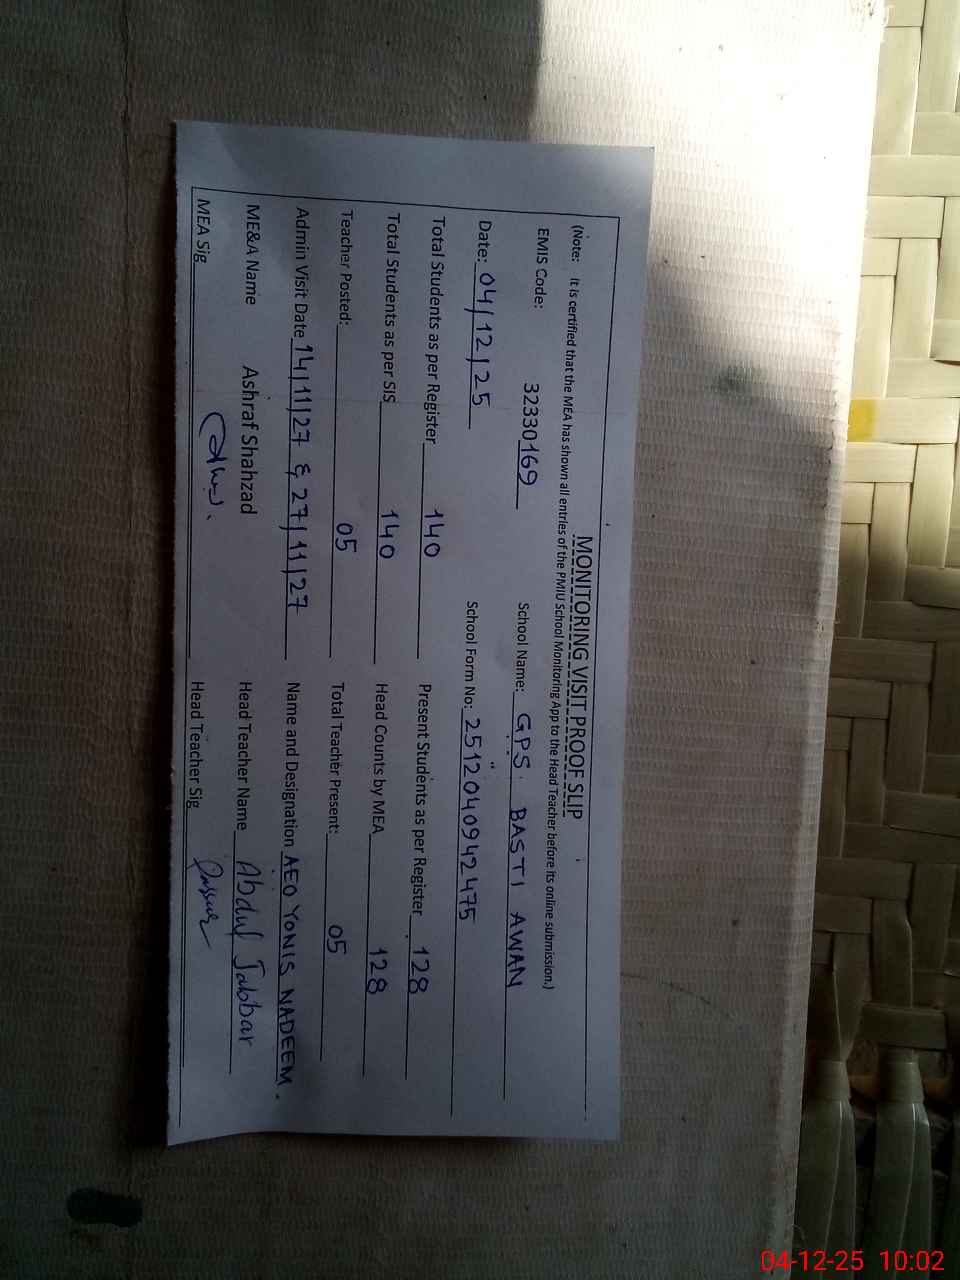 MONITORING VISIT PROOF SLIP
(Note: It is certified that the MEA has shown all entries of the PMIU School Monitoring App to the Head Teacher before its online submission.)
EMIS Code: 32330169 School Name: GPS BASTI AWAN
Date: 04/12/25 School Form No: 2512040942475
Total Students as per Register 140 Present Students as per Register 128
Total Students as per SIS 140 Head Counts by MEA 128
Teacher Posted: 05 Total Teacher Present: 05
Admin Visit Date 14/11/27 & 27/11/27 Name and Designation AEO YONIS NADEEM.
ME&A Name Ashraf Shahzad Head Teacher Name Abdul Jabbar
MEA Sig Head Teacher Sig
04-12-25 10:02